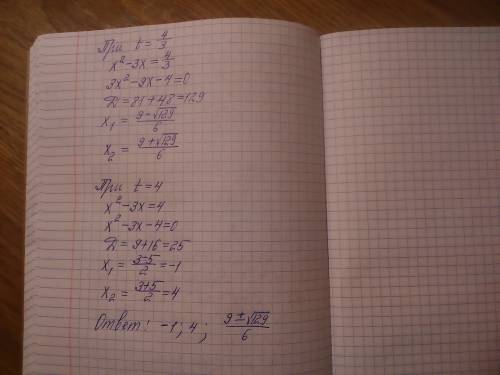 При t = 4/3
x² - 3x = 4/3
3x² - 9x - 4 = 0
D = 81 + 48 = 129
x₁ = (9 - √129)/6
x₂ = (9 + √129)/6
При t = 4
x² - 3x = 4
x² - 3x - 4 = 0
D = 9 + 16 = 25
x₁ = (3 - 5)/2 = -1
x₂ = (3 + 5)/2 = 4
Ответ: -1; 4; (9 ± √129)/6